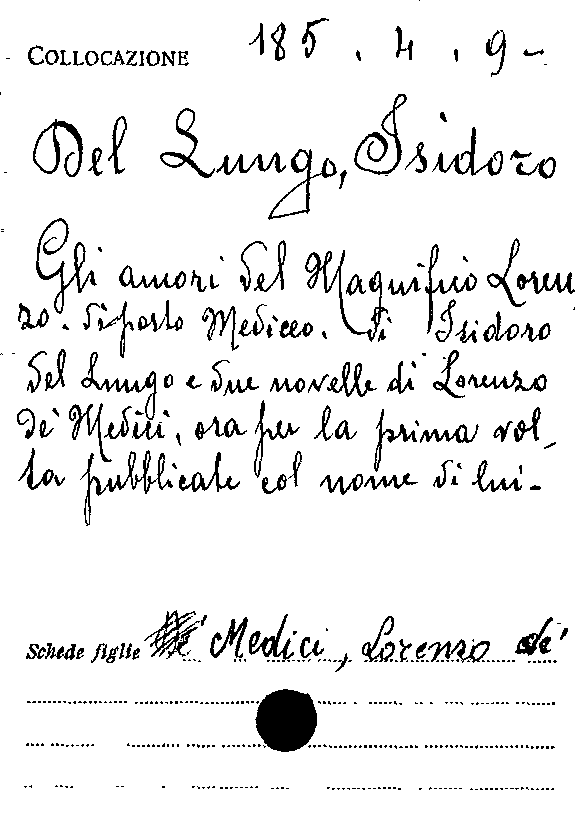 COLLOCAZIONE 185 . 4 . 9 -
Del Lungo, Isidoro
Gli amori del Magnifico Loren
zo. diporto Mediceo. di Isidoro
del Lungo e due novelle di Lorenzo
de' Medici, ora per la prima vol_
ta pubblicate col nome di lui -
Schede figlie Medici, Lorenzo de'